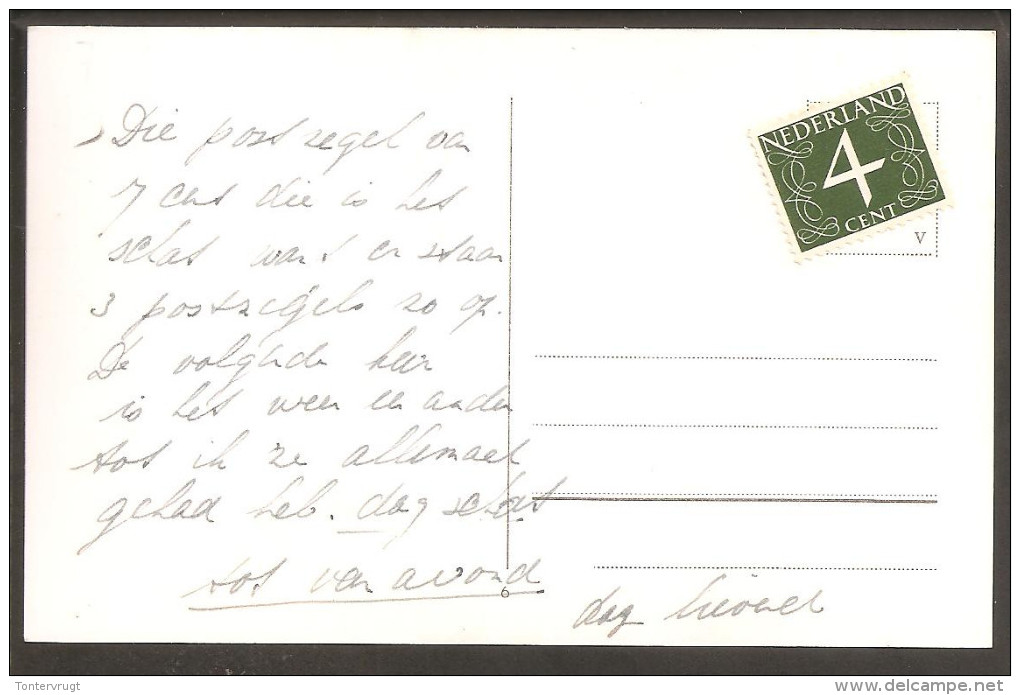 Die postzegel van
7 cent die is het
schat want er staan
3 postzegels zo op.
De volgende keer
is het weer een ander
tot ik ze allemaal
gehad heb. dag schat
tot van avond
dag lieverd
NEDERLAND
4
CENT
V
6
Tontervrugt
delcampe.net